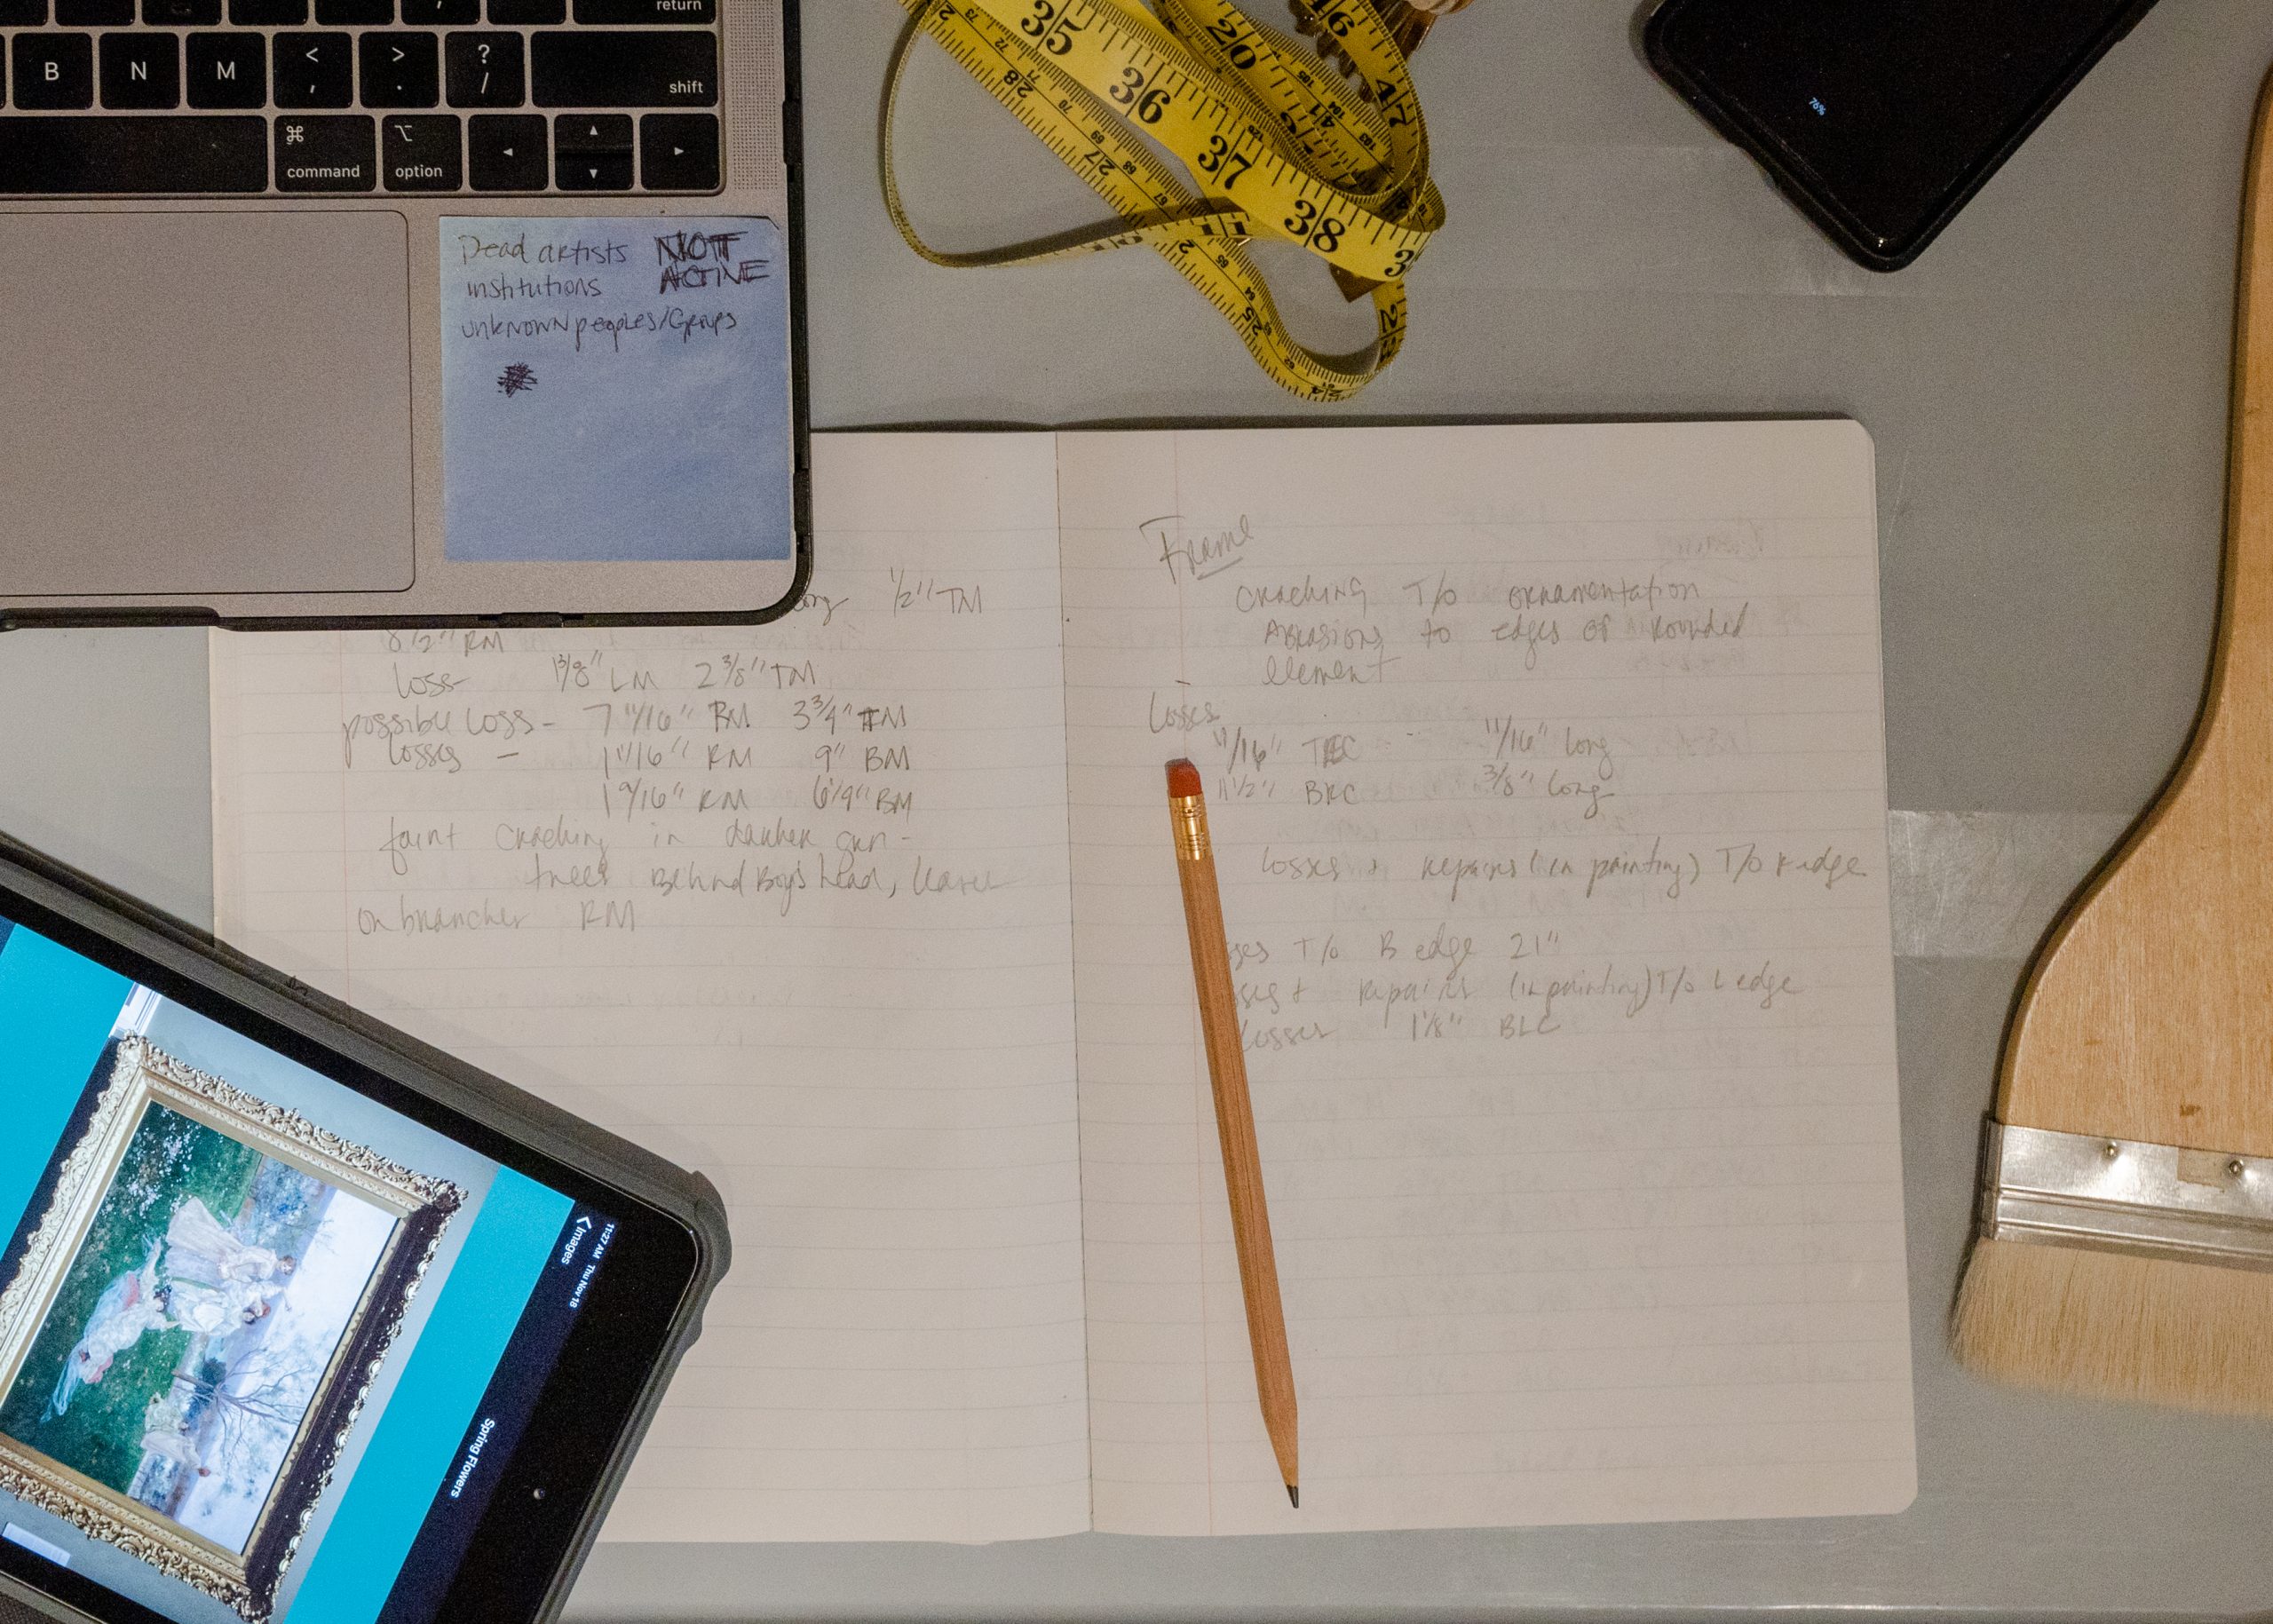 return
B N M < , > . ? / shift
⌘ command ⌥ option ◄ ▲ ▼ ►
Dead artists NOT
institutions ACTIVE
unknown peoples/Groups
35 36 37 38 3
20
46 47
28 27 25
76%
long 1/2" TM
8 1/2" RM
loss - 1 3/8" LM 2 3/8" TM
possible loss - 7 11/16" RM 3 3/4" TM
losses - 1 11/16" RM 9" BM
1 9/16" RM 6 1/4" BM
faint cracking in darker
trees Behind Boy's head, leaves
on branches RM
Frame
cracking T/o ornamentation
Abrasions to edges of rounded
element
Losses -
11/16" 11/16" long
11 1/2" BRC 3/8" long
losses + repairs (in painting) T/o R edge
T/o B edge 21"
+ repairs (in painting) T/o L edge
losses 1 1/8" BLC
11:27 AM Thu Nov 18
< Images
Spring Flowers